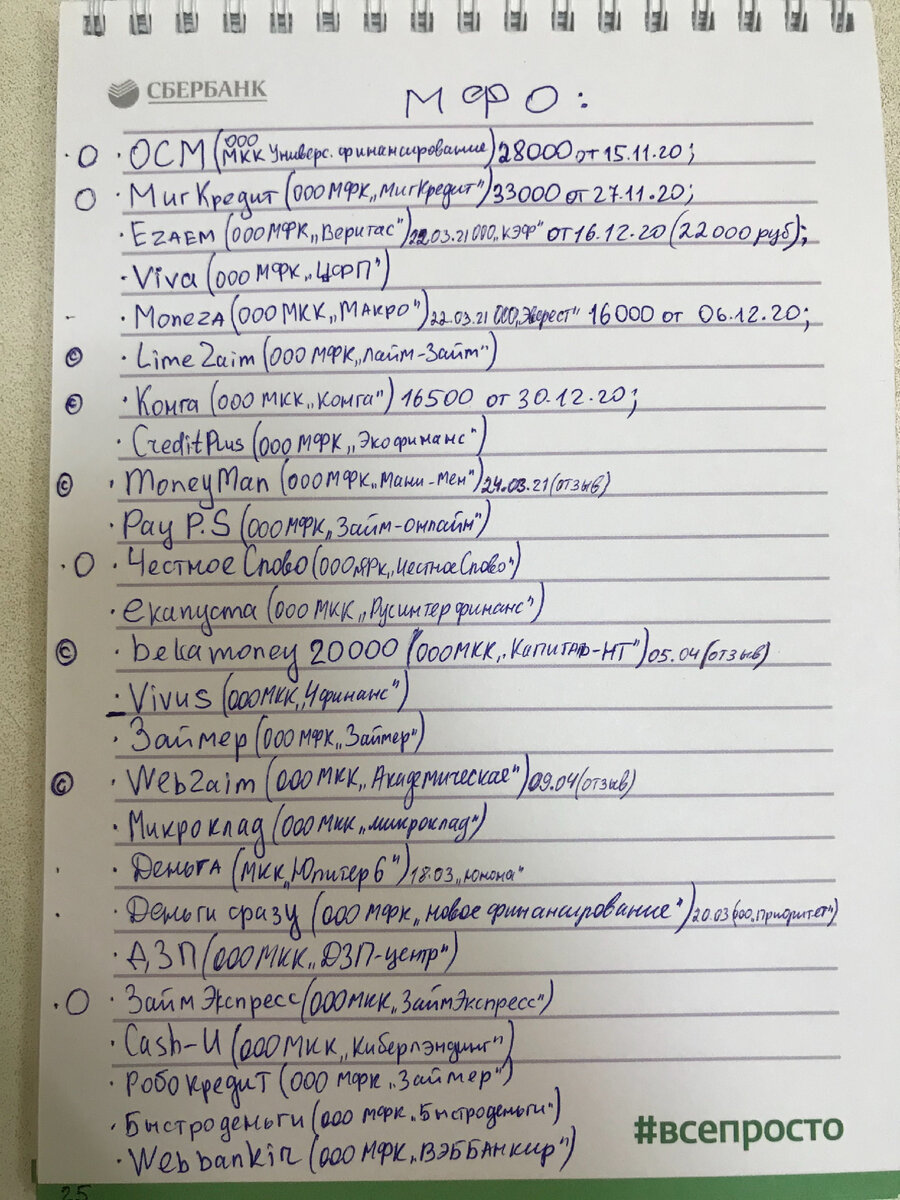 СБЕРБАНК
МФО:
О · ОСМ (ООО МКК Универс. финансирование) 28000 от 15.11.20;
О · МигКредит (ООО МФК „МигКредит") 33000 от 27.11.20;
· EZAEM (ООО МФК „Веритас") 22.03.21 ООО „КЭФ" от 16.12.20 (22000 руб);
· Viva (ООО МФК „ЦФП")
- · MonezA (ООО МКК „Макро") 22.03.21 ООО „Эверест" 16000 от 06.12.20;
© · Lime Zaim (ООО МФК „Лайм-Займ")
· Конга (ООО МКК „Конга") 16500 от 30.12.20;
· CreditPlus (ООО МФК „Экофинанс")
© · MoneyMan (ООО МФК „Мани-Мен") 24.03.21 (отзыв)
· Pay P.S (ООО МФК „Займ-онлайн")
· О · Честное Слово (ООО МФК „Честное Слово")
· екапуста (ООО МКК „Русинтерфинанс")
© · belkamoney 20000 (ООО МКК „Капиталъ-НТ") 05.04 (отзыв)
· Vivus (ООО МКК „4финанс")
· Займер (ООО МФК „Займер")
© · WebZaim (ООО МКК „Академическая") 09.04 (отзыв)
· Микроклад (ООО МКК „Микроклад")
· · ДеньгА (МКК „Юпитер 6") 18.03 „Юнона"
· · Деньги сразу (ООО МФК „Новое финансирование") 20.03 (ООО „Приоритет")
· ДЗП (ООО МКК „ДЗП-центр")
· О · Займ Экспресс (ООО МКК „ЗаймЭкспресс")
· Cash-U (ООО МКК „Киберлэндинг")
· Робокредит (ООО МФК „Займер")
· Быстроденьги (ООО МФК „Быстроденьги")
· Webbankir (ООО МФК „ВЭББАНКИР")
#всепросто
25